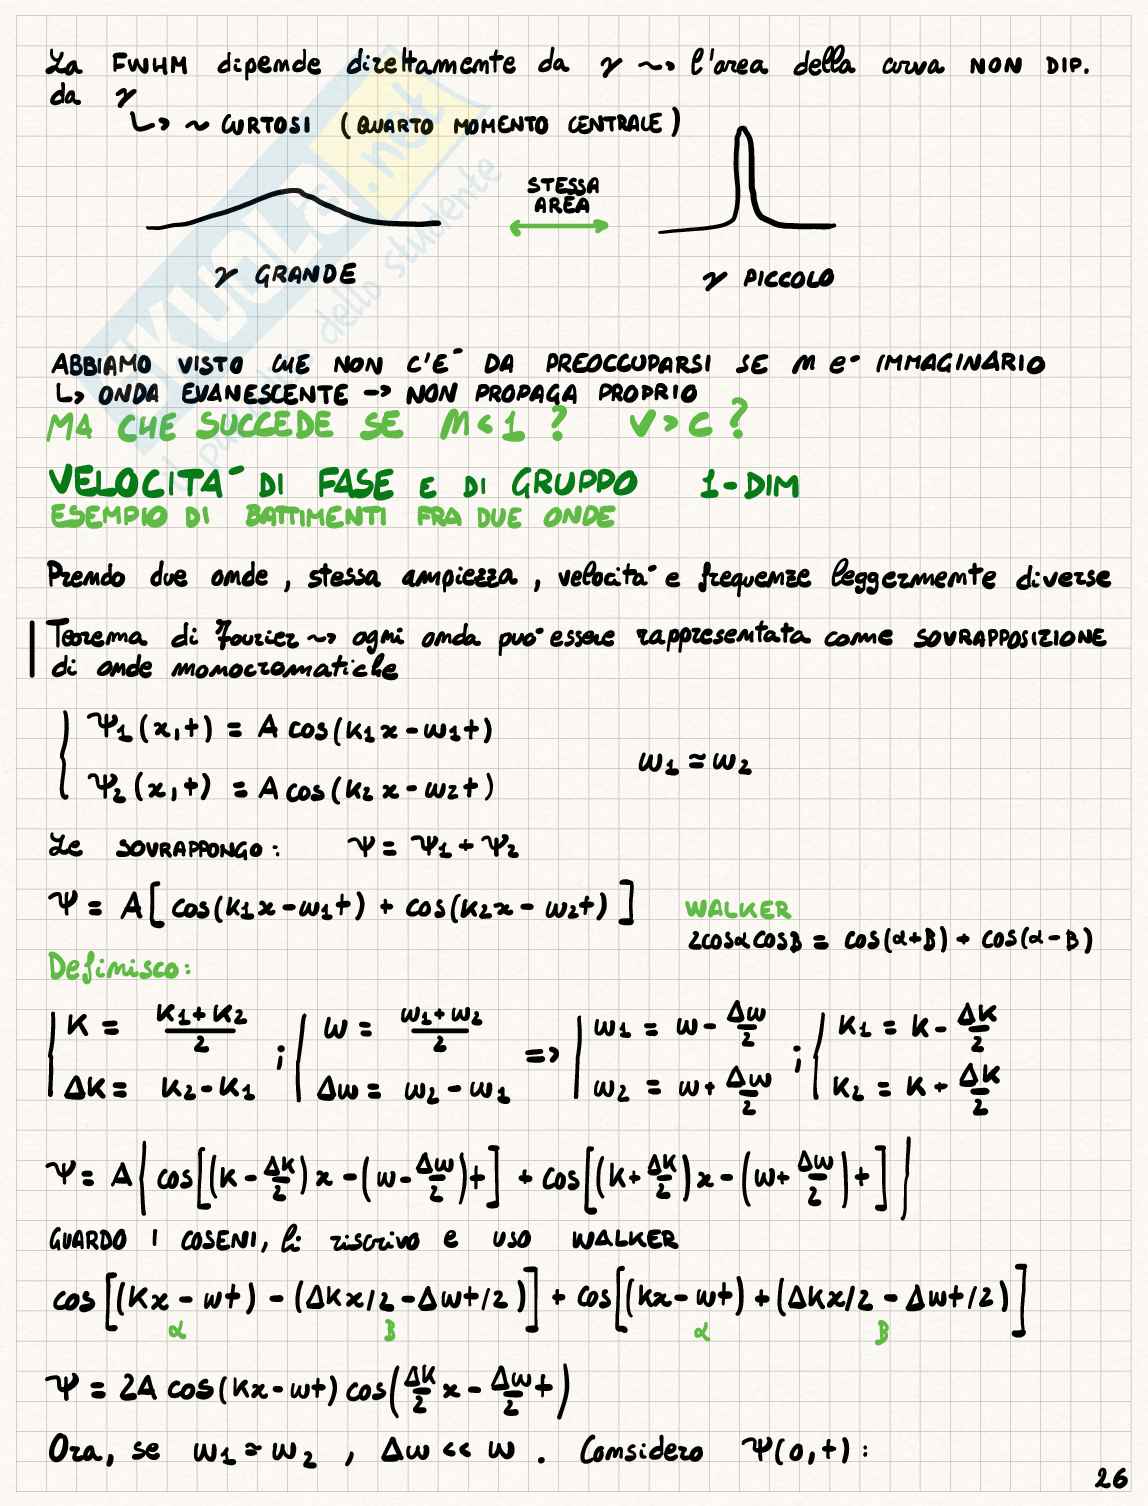 La FWHM dipende direttamente da γ ~> l'area della curva NON DIP.
da γ
↳ ~ CURTOSI (QUARTO MOMENTO CENTRALE)
STESSA
AREA
γ GRANDE
γ PICCOLO
ABBIAMO VISTO CHE NON C'E' DA PREOCCUPARSI SE n e' IMMAGINARIO
↳ ONDA EVANESCENTE -> NON PROPAGA PROPRIO
MA CHE SUCCEDE SE n < 1 ? v > c ?
VELOCITA' DI FASE E DI GRUPPO 1-DIM
ESEMPIO DI BATTIMENTI FRA DUE ONDE
Prendo due onde, stessa ampiezza, velocita' e frequenze leggermente diverse
Teorema di Fourier ~> ogni onda puo' essere rappresentata come SOVRAPPOSIZIONE
di onde monocromatiche
Ψ1(x,t) = A cos(k1x - ω1t)
ω1 ≃ ω2
Ψ2(x,t) = A cos(k2x - ω2t)
Le SOVRAPPONGO: Ψ = Ψ1 + Ψ2
Ψ = A[cos(k1x - ω1t) + cos(k2x - ω2t)]
WALKER
2cosα cosβ = cos(α+β) + cos(α-β)
Definisco:
K = (K1+K2)/2 ; ω = (ω1+ω2)/2 => ω1 = ω - Δω/2 ; K1 = K - ΔK/2
ΔK = K2-K1 Δω = ω2 - ω1 ω2 = ω + Δω/2 K2 = K + ΔK/2
Ψ = A{cos[(K - ΔK/2)x - (ω - Δω/2)t] + cos[(K + ΔK/2)x - (ω + Δω/2)t]}
GUARDO I COSENI, li riscrivo e uso WALKER
cos[(Kx - ωt) - (ΔKx/2 - Δωt/2)] + cos[(Kx - ωt) + (ΔKx/2 - Δωt/2)]
α β α β
Ψ = 2A cos(Kx - ωt) cos(ΔK/2 x - Δω/2 t)
Ora, se ω1 ≃ ω2 , Δω << ω . Considero Ψ(0,t) :
26